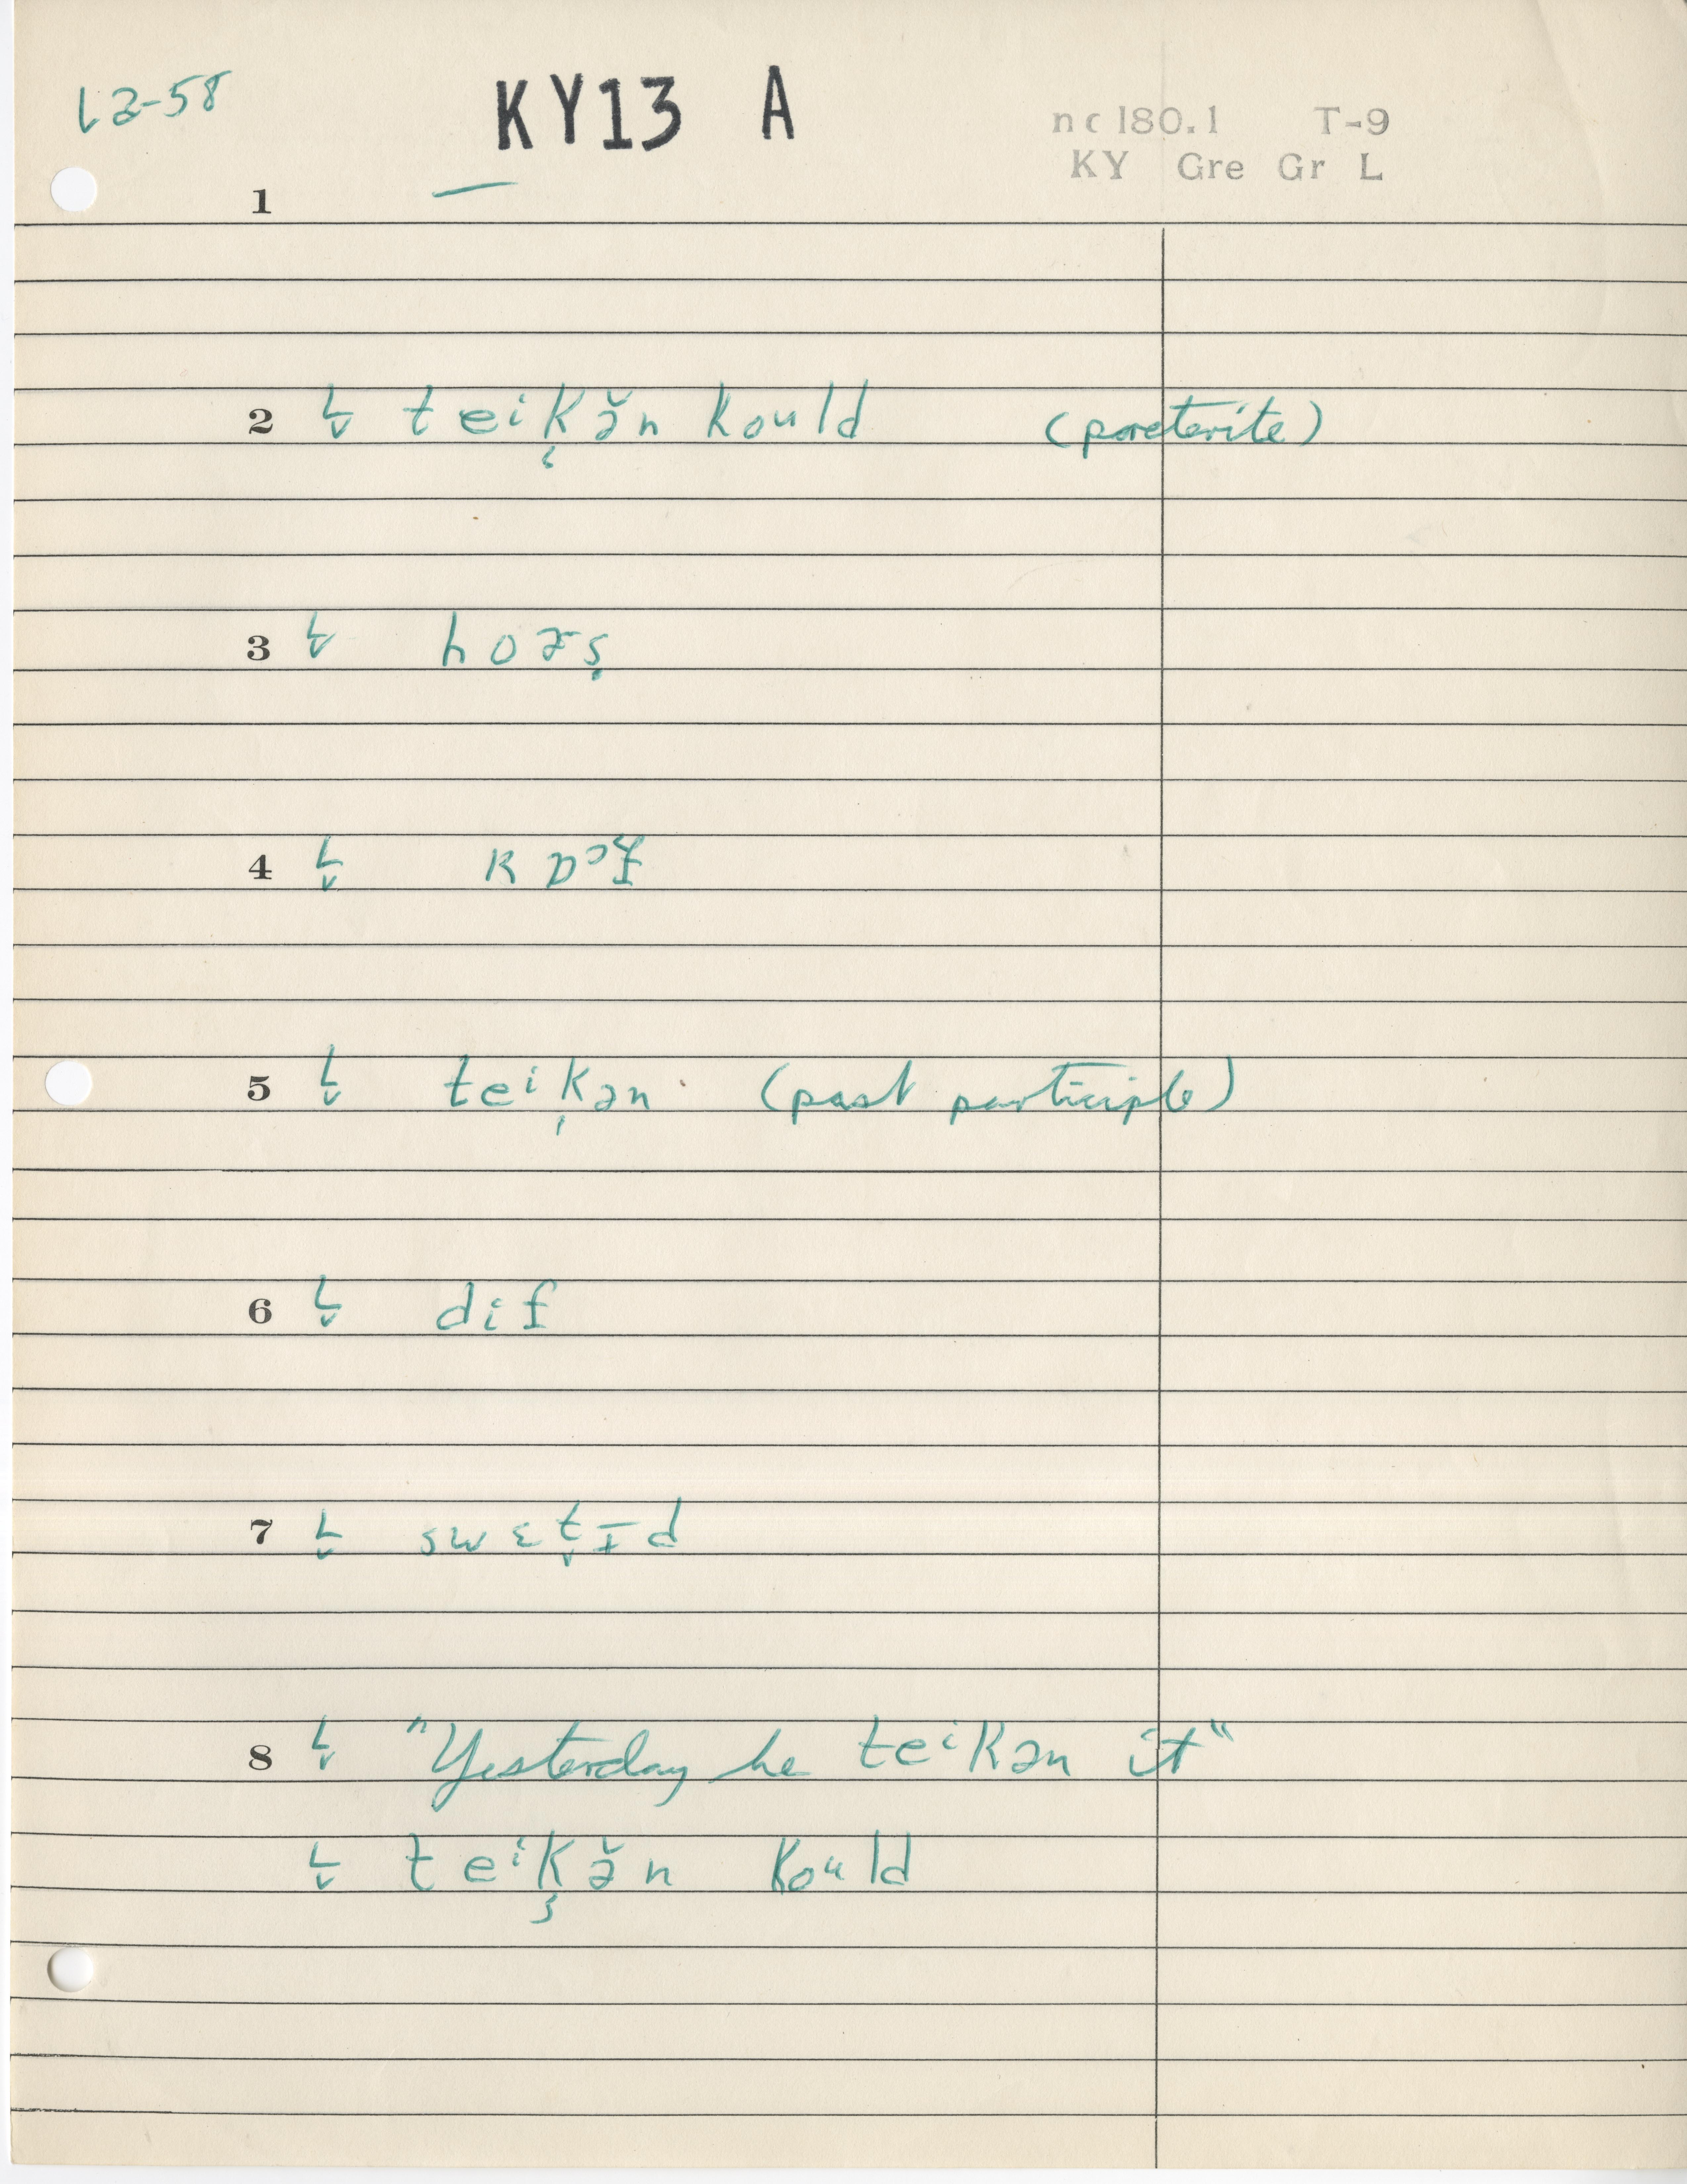 L2-58
KY13 A
nc180.1 T-9
KY Gre Gr L
1 —
2 teⁱk̬ə̆n koᵘld (preterite)
3 hoɚs̬
4
5 teⁱk̬ən (past participle)
6 dif
7 swɛt̬ɪd
8 "Yesterday he teⁱkən it"
teⁱk̬ə̆n koᵘld